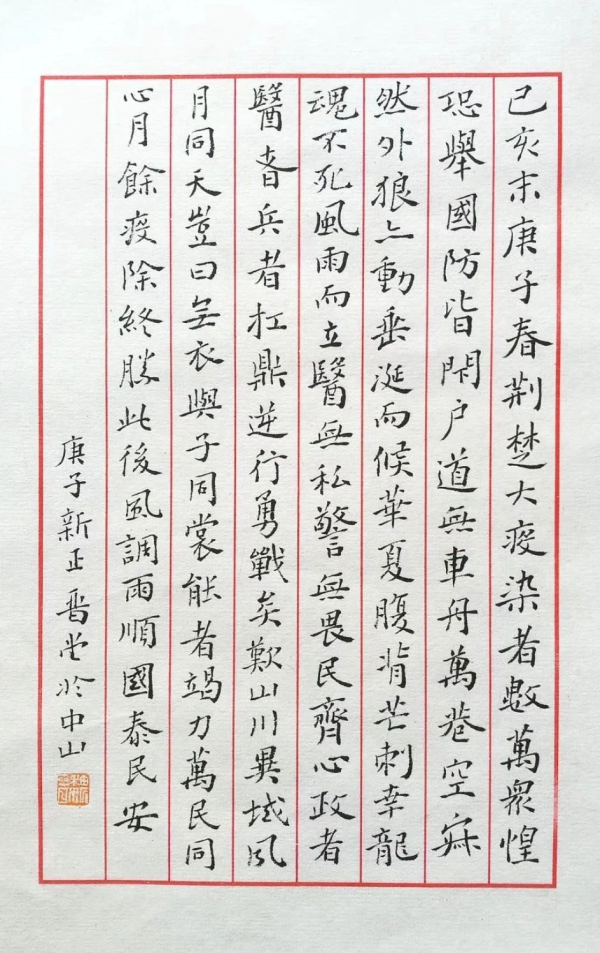 己亥末庚子春荆楚大疫染者數萬眾惶
恐舉國防皆閉户道無車舟萬巷空寂
然外狼亦動垂涎而候華夏腹背芒刺幸龍
魂不死風雨而立醫無私警無畏民齊心政者
醫者兵者扛鼎逆行勇戰矣歎山川異域風
月同天豈曰無衣與子同裳能者竭力萬民同
心月餘疫除終勝此後風調雨順國泰民安
庚子新正晋堂於中山